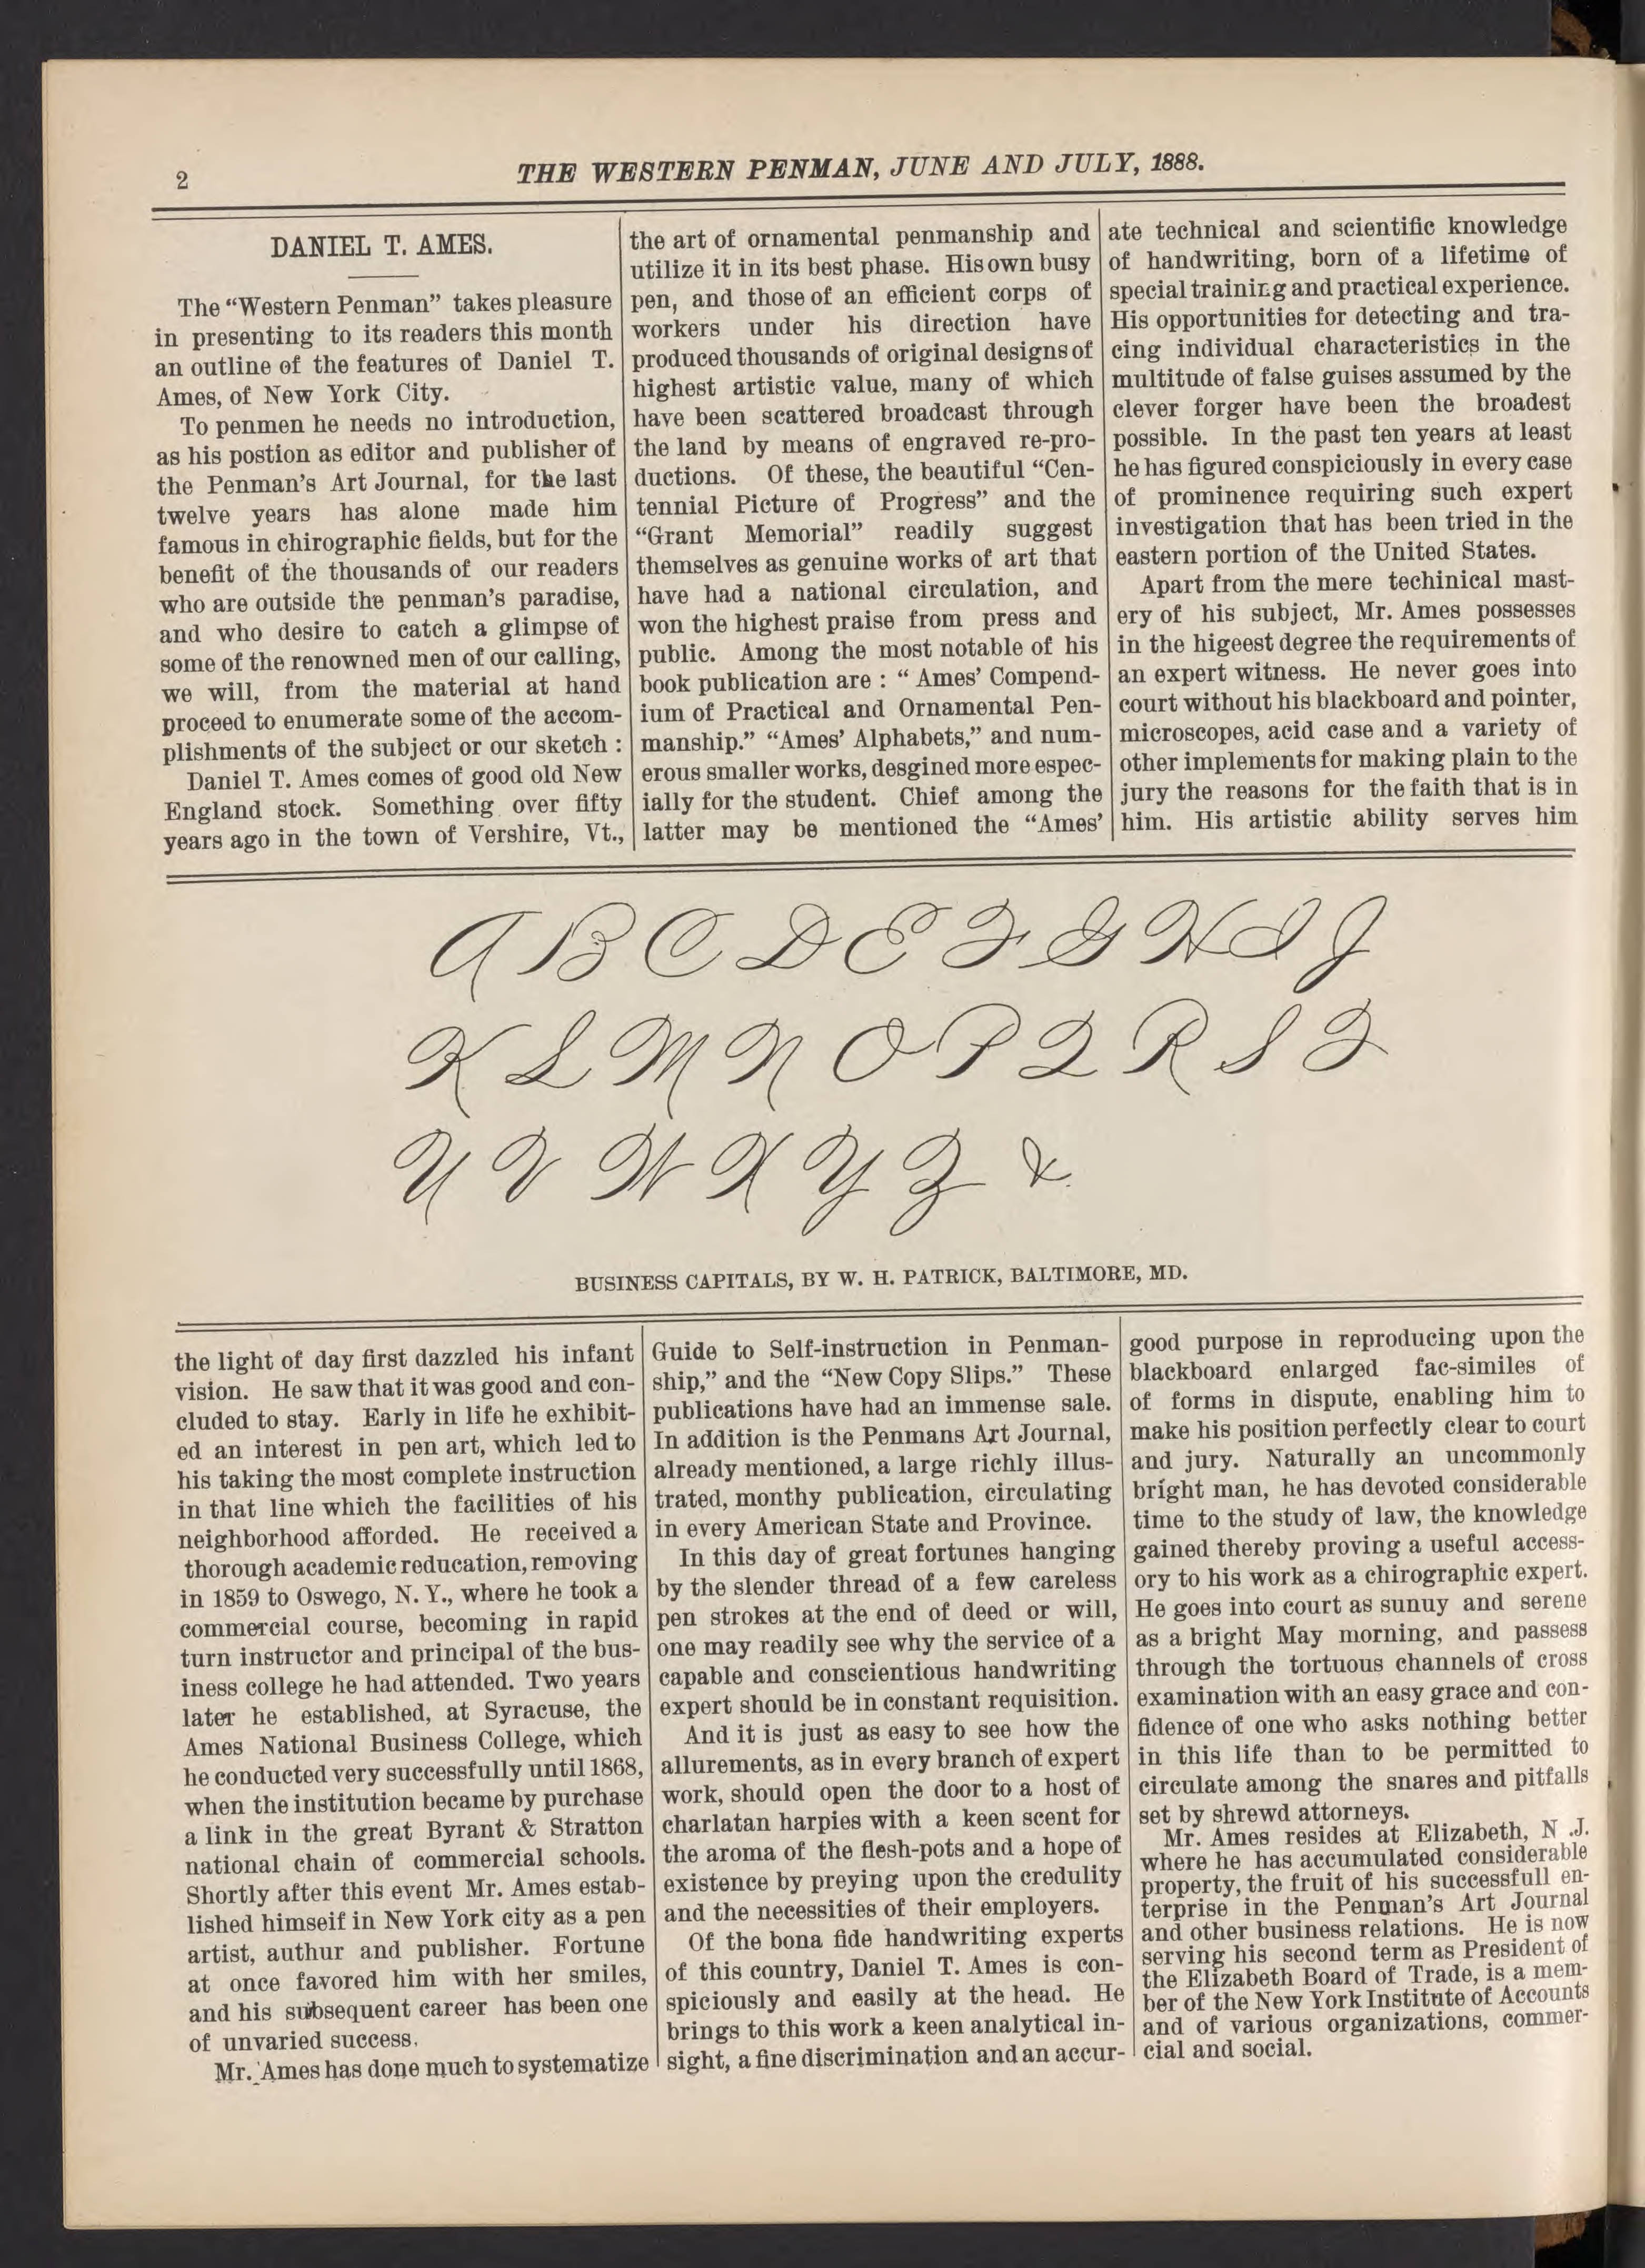 2
THE WESTERN PENMAN, JUNE AND JULY, 1888.
DANIEL T. AMES.
The “Western Penman” takes pleasure
in presenting to its readers this month
an outline of the features of Daniel T.
Ames, of New York City.
To penmen he needs no introduction,
as his postion as editor and publisher of
the Penman's Art Journal, for the last
twelve years has alone made him
famous in chirographic fields, but for the
benefit of the thousands of our readers
who are outside the penman's paradise,
and who desire to catch a glimpse of
some of the renowned men of our calling,
we will, from the material at hand
proceed to enumerate some of the accom-
plishments of the subject or our sketch :
Daniel T. Ames comes of good old New
England stock. Something over fifty
years ago in the town of Vershire, Vt.,
the light of day first dazzled his infant
vision. He saw that it was good and con-
cluded to stay. Early in life he exhibit-
ed an interest in pen art, which led to
his taking the most complete instruction
in that line which the facilities of his
neighborhood afforded. He received a
thorough academic reducation, removing
in 1859 to Oswego, N. Y., where he took a
commercial course, becoming in rapid
turn instructor and principal of the bus-
iness college he had attended. Two years
later he established, at Syracuse, the
Ames National Business College, which
he conducted very successfully until 1868,
when the institution became by purchase
a link in the great Byrant & Stratton
national chain of commercial schools.
Shortly after this event Mr. Ames estab-
lished himseif in New York city as a pen
artist, authur and publisher. Fortune
at once favored him with her smiles,
and his subsequent career has been one
of unvaried success.
Mr. Ames has done much to systematize
the art of ornamental penmanship and
utilize it in its best phase. His own busy
pen, and those of an efficient corps of
workers under his direction have
produced thousands of original designs of
highest artistic value, many of which
have been scattered broadcast through
the land by means of engraved re-pro-
ductions. Of these, the beautiful “Cen-
tennial Picture of Progress” and the
“Grant Memorial” readily suggest
themselves as genuine works of art that
have had a national circulation, and
won the highest praise from press and
public. Among the most notable of his
book publication are : “ Ames' Compend-
ium of Practical and Ornamental Pen-
manship.” “Ames' Alphabets,” and num-
erous smaller works, desgined more espec-
ially for the student. Chief among the
latter may be mentioned the “Ames'
Guide to Self-instruction in Penman-
ship,” and the “New Copy Slips.” These
publications have had an immense sale.
In addition is the Penmans Art Journal,
already mentioned, a large richly illus-
trated, monthy publication, circulating
in every American State and Province.
In this day of great fortunes hanging
by the slender thread of a few careless
pen strokes at the end of deed or will,
one may readily see why the service of a
capable and conscientious handwriting
expert should be in constant requisition.
And it is just as easy to see how the
allurements, as in every branch of expert
work, should open the door to a host of
charlatan harpies with a keen scent for
the aroma of the flesh-pots and a hope of
existence by preying upon the credulity
and the necessities of their employers.
Of the bona fide handwriting experts
of this country, Daniel T. Ames is con-
spiciously and easily at the head. He
brings to this work a keen analytical in-
sight, a fine discrimination and an accur-
ate technical and scientific knowledge
of handwriting, born of a lifetime of
special training and practical experience.
His opportunities for detecting and tra-
cing individual characteristics in the
multitude of false guises assumed by the
clever forger have been the broadest
possible. In the past ten years at least
he has figured conspiciously in every case
of prominence requiring such expert
investigation that has been tried in the
eastern portion of the United States.
Apart from the mere techinical mast-
ery of his subject, Mr. Ames possesses
in the higeest degree the requirements of
an expert witness. He never goes into
court without his blackboard and pointer,
microscopes, acid case and a variety of
other implements for making plain to the
jury the reasons for the faith that is in
him. His artistic ability serves him
good purpose in reproducing upon the
blackboard enlarged fac-similes of
of forms in dispute, enabling him to
make his position perfectly clear to court
and jury. Naturally an uncommonly
bright man, he has devoted considerable
time to the study of law, the knowledge
gained thereby proving a useful access-
ory to his work as a chirographic expert.
He goes into court as sunuy and serene
as a bright May morning, and passess
through the tortuous channels of cross
examination with an easy grace and con-
fidence of one who asks nothing better
in this life than to be permitted to
circulate among the snares and pitfalls
set by shrewd attorneys.
Mr. Ames resides at Elizabeth, N .J.
where he has accumulated considerable
property, the fruit of his successfull en-
terprise in the Penman's Art Journal
and other business relations. He is now
serving his second term as President of
the Elizabeth Board of Trade, is a mem-
ber of the New York Institute of Accounts
and of various organizations, commer-
cial and social.
A B C D E F G H I J
K L M N O P Q R S T
U V W X Y Z &
BUSINESS CAPITALS, BY W. H. PATRICK, BALTIMORE, MD.